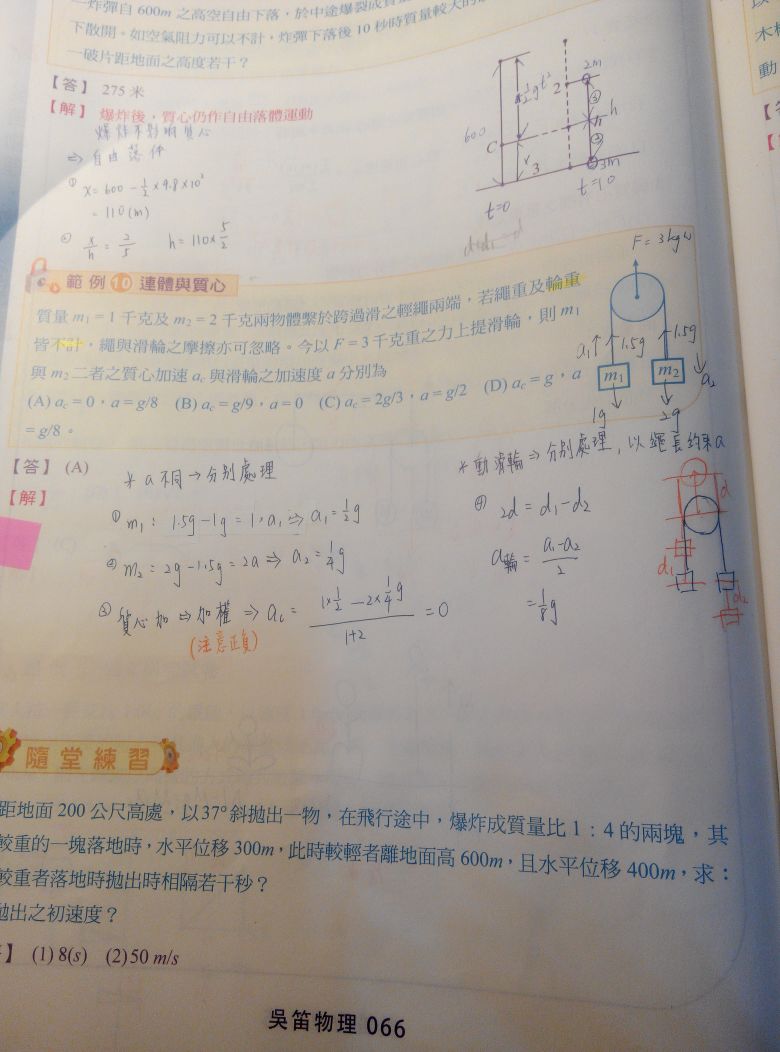 一炸彈自 600m 之高空自由下落，於中途爆裂成
下散開。如空氣阻力可以不計，炸彈下落後 10 秒時質量較大的
一破片距地面之高度若干？
【答】 275 米
【解】 爆炸後，質心仍作自由落體運動
爆炸不影響質心
⇒ 自由落體
① x = 600 - 1/2 × 9.8 × 10²
= 110 (m)
② x/h = 2/5 h = 110 × 5/2
600
1/2 gt²
C
x
3
t=0
2
2m
③
h
②
3m
t=10
範例 10 連體與質心
質量 m₁ = 1 千克及 m₂ = 2 千克兩物體繫於跨過滑之輕繩兩端，若繩重及輪重
皆不計，繩與滑輪之摩擦亦可忽略。今以 F = 3 千克重之力上提滑輪，則 m₁
與 m₂ 二者之質心加速 a꜀ 與滑輪之加速度 a 分別為
(A) a꜀ = 0，a = g/8 (B) a꜀ = g/9，a = 0 (C) a꜀ = 2g/3，a = g/2 (D) a꜀ = g，a
= g/8。
F = 3kgw
a₁↑ ↑1.5g ↑1.5g ↓a₂
m₁ m₂
1g 2g
【答】 (A)
【解】
* a 不同 → 分別處理
① m₁ : 1.5g - 1g = 1×a₁ ⇒ a₁ = 1/2 g
② m₂ = 2g - 1.5g = 2a ⇒ a₂ = 1/4 g
③ 質心加 ⇒ 加權 ⇒ a꜀ = (1×1/2 - 2×1/4 g)/(1+2) = 0
(注意正負)
* 動滑輪 ⇒ 分別處理，以繩長約束a
④ 2d = d₁ - d₂
a輪 = (a₁ - a₂)/2
= 1/8 g
d
d₁
d₂
隨堂練習
距地面 200 公尺高處，以 37° 斜拋出一物，在飛行途中，爆炸成質量比 1：4 的兩塊，其
較重的一塊落地時，水平位移 300m，此時較輕者離地面高 600m，且水平位移 400m，求：
較重者落地時拋出時相隔若干秒？
拋出之初速度？
】 (1) 8(s) (2) 50 m/s
吳笛物理 066